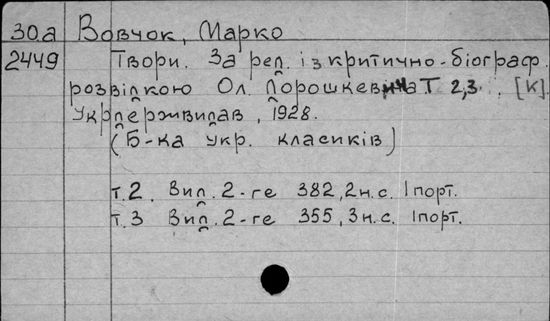 30.а Вовчок, Марко
2449 Твори. За ред. із критично-біограф.
розвідкою Ол. Дорошкевича Т 2,3. [К].
Укрдержвидав, 1928.
(Б-ка укр. класиків)
т.2. Вид. 2-ге 382, 2 н.с. 1 порт.
т.3 Вид. 2-ге 355, 3 н.с. 1 порт.